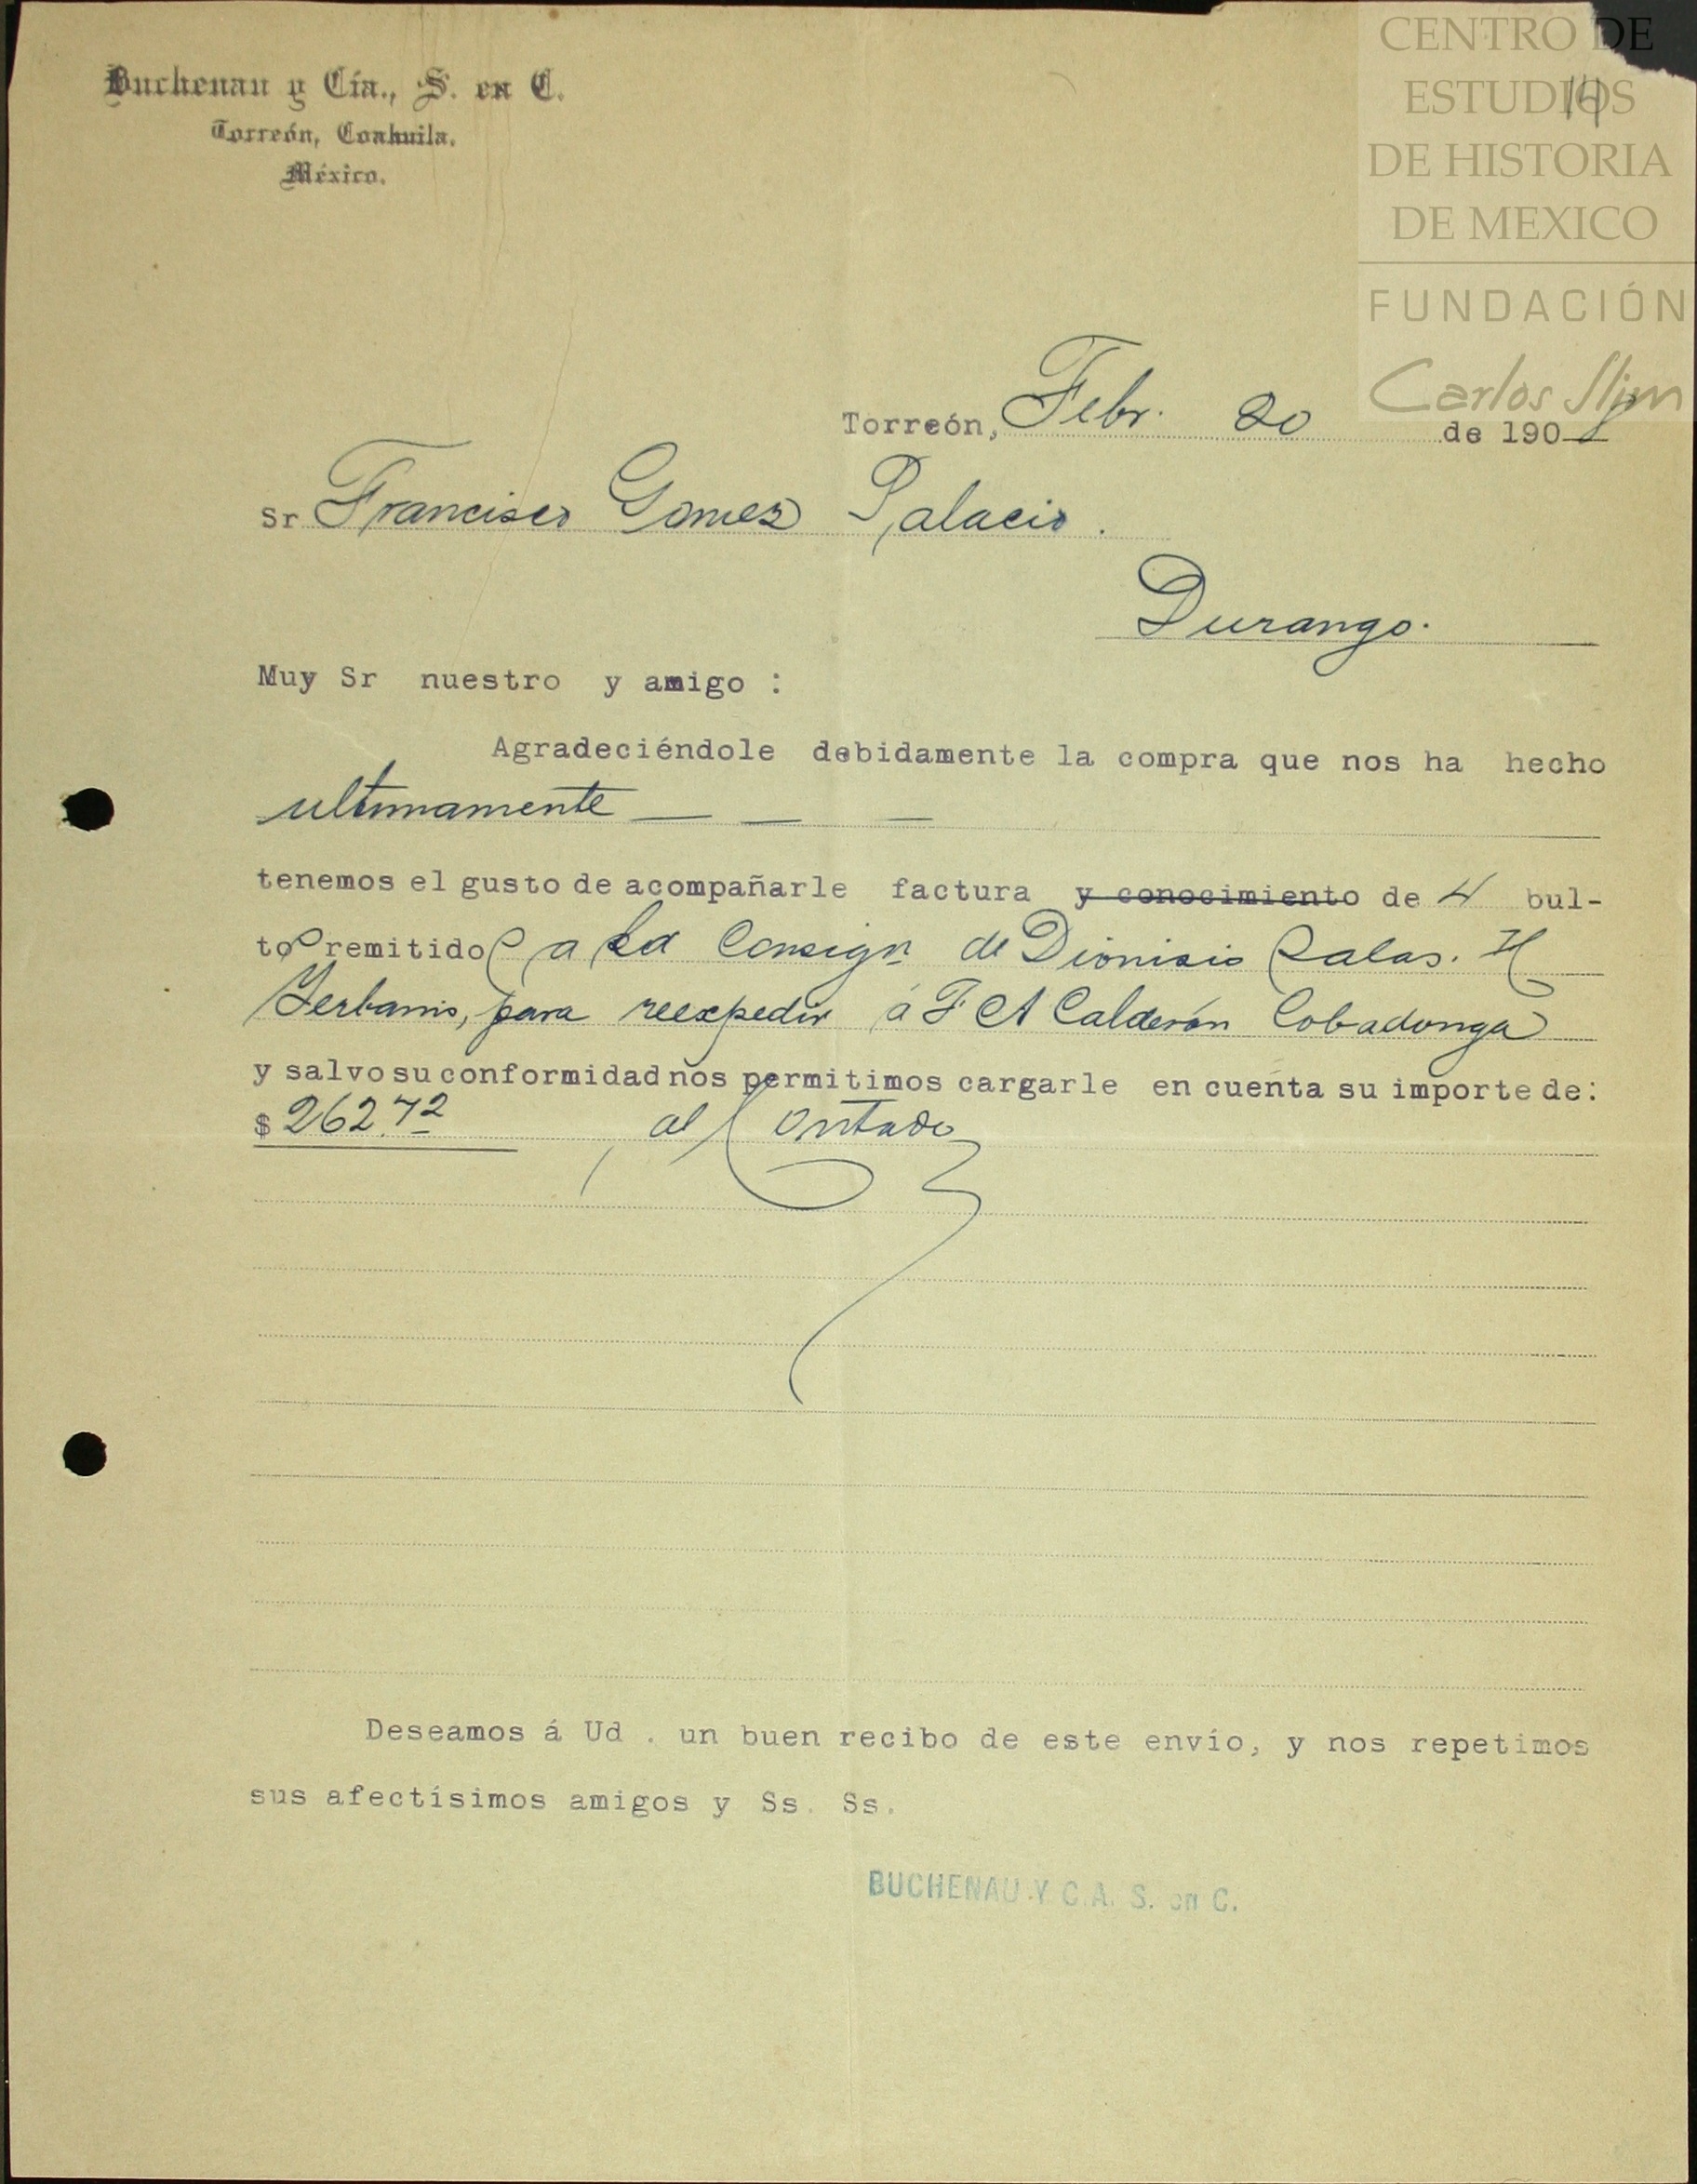 CENTRO DE
ESTUDIOS
DE HISTORIA
DE MEXICO
FUNDACIÓN
Carlos Slim
14
Buchenau y Cía., S. en C.
Torreón, Coahuila.
México.
Torreón, Febr. 20 de 1908
Sr Francisco Gomez Palacio.
Durango.
Muy Sr nuestro y amigo :
Agradeciéndole debidamente la compra que nos ha hecho
ultimamente _ _ _
tenemos el gusto de acompañarle factura y conocimiento de 4 bul-
tos remitidos a la Consign de Dionisio Salas. H
Yerbanis, para reexpedir á F A Calderón Cobadonga
y salvo su conformidad nos permitimos cargarle en cuenta su importe de:
$ 262.72 al Contado
Deseamos á Ud . un buen recibo de este envío, y nos repetimos
sus afectísimos amigos y Ss. Ss.
BUCHENAU Y C.A. S. en C.